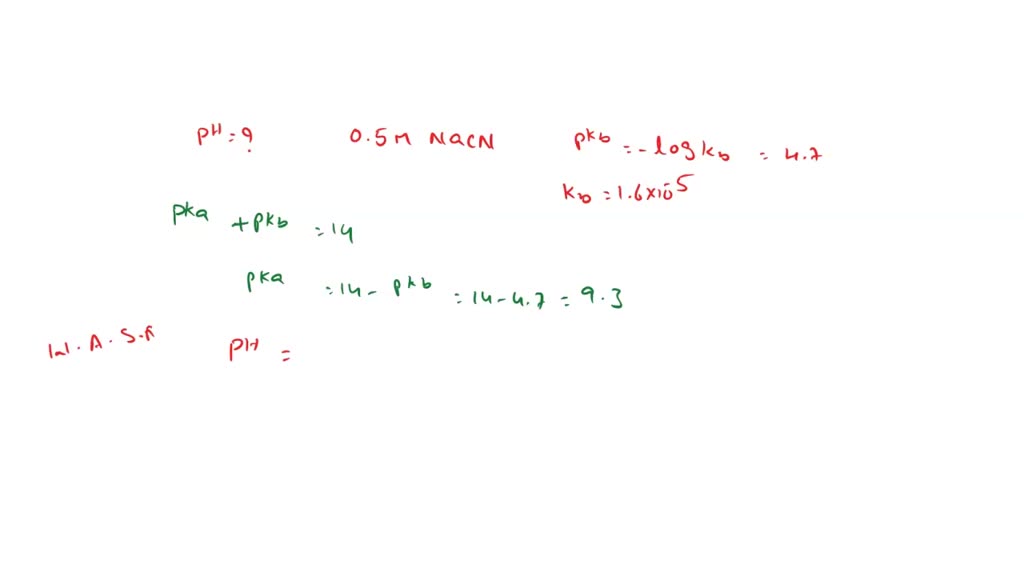 pH = ? 0.5M NaCN pkb = -log kb = 4.7
kb = 1.6x10-5
pka + pkb = 14
pka = 14 - pkb = 14 - 4.7 = 9.3
pH =